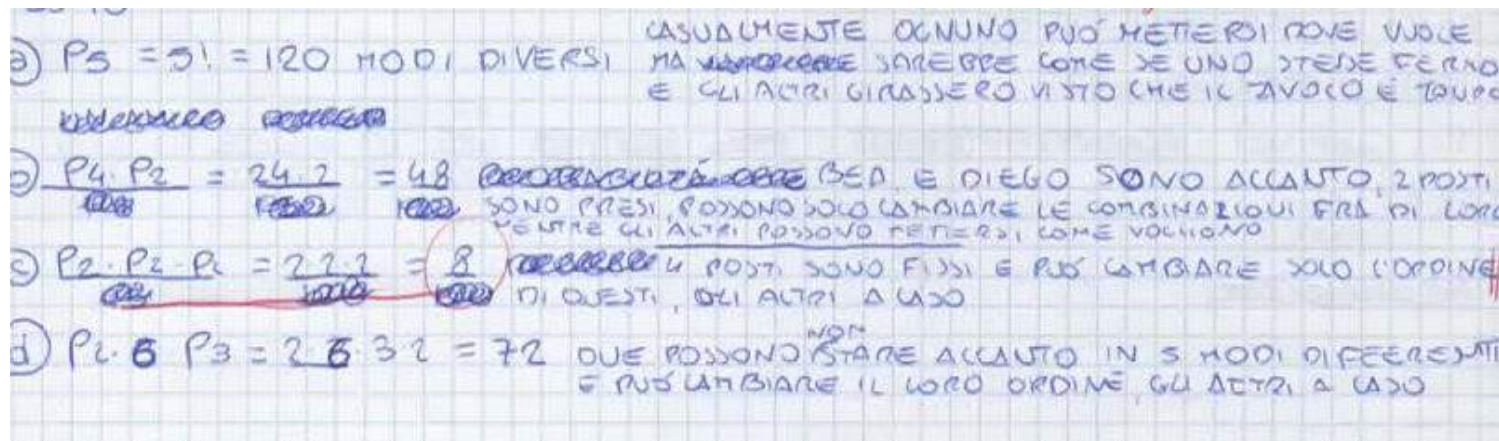 a) P5 = 5! = 120 MODI DIVERSI CASUALMENTE OGNUNO PUÓ METTERSI DOVE VUOLE
MA SAREBBE COME SE UNO STESSE FERMO
E GLI ALTRI GIRASSERO VISTO CHE IL TAVOLO É
b) P4. P2 = 24.2 = 48 BEA E DIEGO SONO ACCANTO, 2 POSTI
SONO PRESI, POSSONO SOLO CAMBIARE LE COMBINAZIONI FRA DI LORO
MENTRE GLI ALTRI POSSONO METTERSI COME VOGLIONO
c) P2.P2.P2 = 2.2.2 = 8 4 POSTI SONO FISSI E PUÓ CAMBIARE SOLO L'ORDINE
DI QUESTI, GLI ALTRI A CASO
d) P2. 6 P3 = 2 6.3 2 = 72 DUE POSSONO NON STARE ACCANTO IN 5 MODI DIFFERENTI
E PUÓ CAMBIARE IL LORO ORDINE, GLI ALTRI A CASO